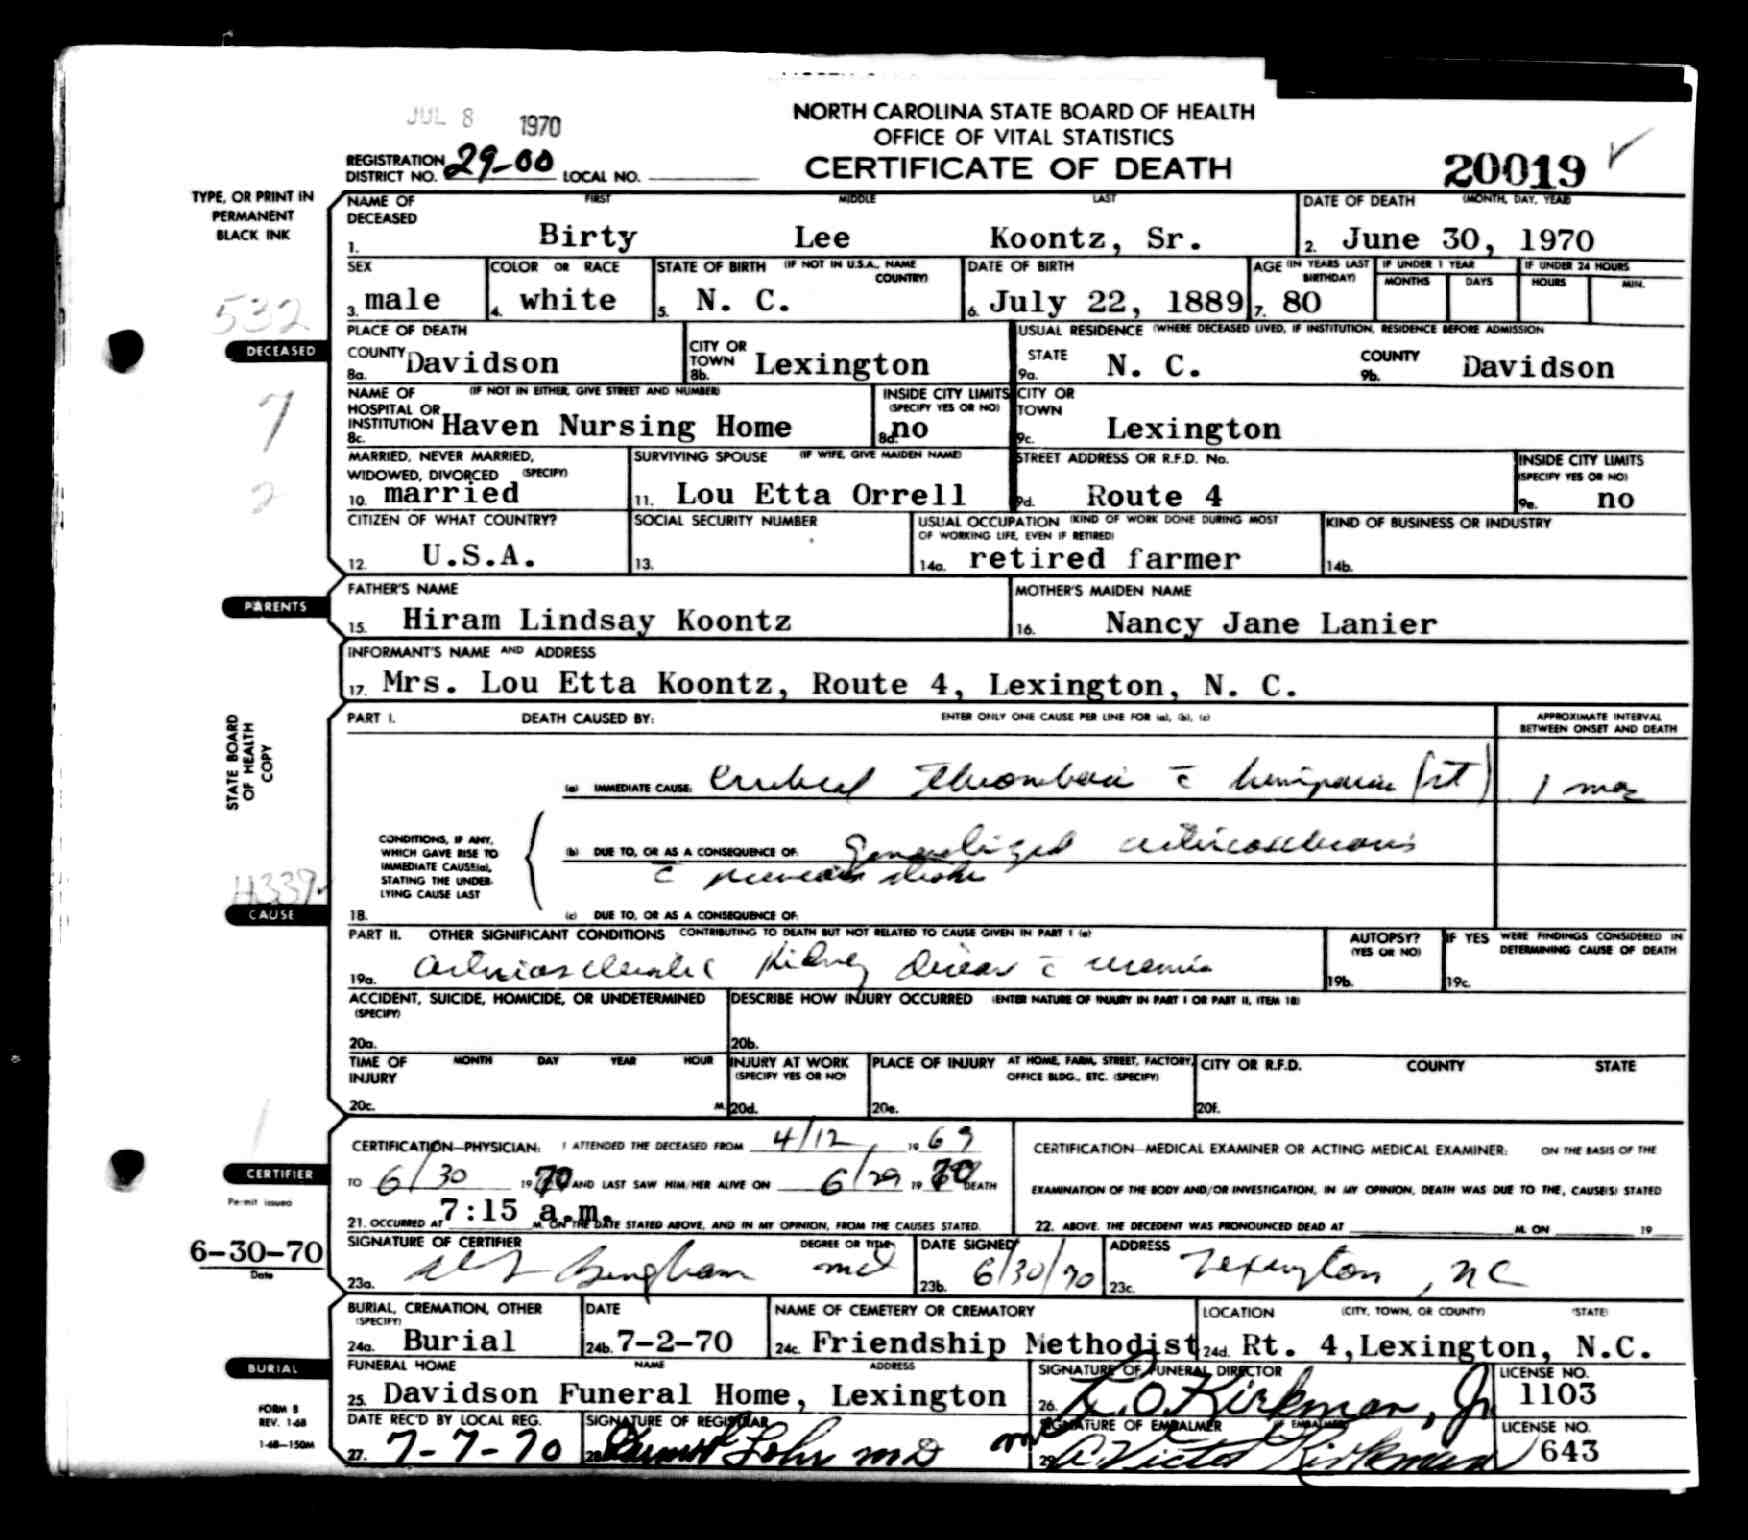 JUL 8 1970
NORTH CAROLINA STATE BOARD OF HEALTH
OFFICE OF VITAL STATISTICS
CERTIFICATE OF DEATH
REGISTRATION DISTRICT NO. 29-00 LOCAL NO.
20019 ✓
TYPE, OR PRINT IN
PERMANENT
BLACK INK
NAME OF DECEASED FIRST MIDDLE LAST
1. Birty Lee Koontz, Sr.
DATE OF DEATH (MONTH, DAY, YEAR)
2. June 30, 1970
SEX
3. male
COLOR OR RACE
4. white
STATE OF BIRTH (IF NOT IN U.S.A., NAME COUNTRY)
5. N. C.
DATE OF BIRTH
6. July 22, 1889
AGE (IN YEARS LAST BIRTHDAY)
7. 80
IF UNDER 1 YEAR
MONTHS DAYS
IF UNDER 24 HOURS
HOURS MIN.
532
DECEASED
7
2
PLACE OF DEATH
COUNTY
8a. Davidson
CITY OR TOWN
8b. Lexington
USUAL RESIDENCE (WHERE DECEASED LIVED, IF INSTITUTION, RESIDENCE BEFORE ADMISSION
STATE
9a. N. C.
COUNTY
9b. Davidson
NAME OF HOSPITAL OR INSTITUTION (IF NOT IN EITHER, GIVE STREET AND NUMBER)
8c. Haven Nursing Home
INSIDE CITY LIMITS (SPECIFY YES OR NO)
8d. no
CITY OR TOWN
9c. Lexington
MARRIED, NEVER MARRIED, WIDOWED, DIVORCED (SPECIFY)
10. married
SURVIVING SPOUSE (IF WIFE, GIVE MAIDEN NAME)
11. Lou Etta Orrell
STREET ADDRESS OR R.F.D. No.
9d. Route 4
INSIDE CITY LIMITS (SPECIFY YES OR NO)
9e. no
CITIZEN OF WHAT COUNTRY?
12. U.S.A.
SOCIAL SECURITY NUMBER
13.
USUAL OCCUPATION (KIND OF WORK DONE DURING MOST OF WORKING LIFE, EVEN IF RETIRED)
14a. retired farmer
KIND OF BUSINESS OR INDUSTRY
14b.
PARENTS
FATHER'S NAME
15. Hiram Lindsay Koontz
MOTHER'S MAIDEN NAME
16. Nancy Jane Lanier
INFORMANT'S NAME AND ADDRESS
17. Mrs. Lou Etta Koontz, Route 4, Lexington, N. C.
STATE BOARD
OF HEALTH
COPY
PART I. DEATH CAUSED BY: ENTER ONLY ONE CAUSE PER LINE FOR (a), (b), (c)
APPROXIMATE INTERVAL BETWEEN ONSET AND DEATH
(a) IMMEDIATE CAUSE: Cerebral Thrombosis c̄ hemiparesis (rt) 1 mo
CONDITIONS, IF ANY,
WHICH GAVE RISE TO
IMMEDIATE CAUSE(a),
STATING THE UNDER-
LYING CAUSE LAST
(b) DUE TO, OR AS A CONSEQUENCE OF: Generalized arteriosclerosis
c̄ previous strokes
18. (c) DUE TO, OR AS A CONSEQUENCE OF:
4339
CAUSE
PART II. OTHER SIGNIFICANT CONDITIONS CONTRIBUTING TO DEATH BUT NOT RELATED TO CAUSE GIVEN IN PART 1 (a)
19a. arteriosclerotic Kidney Disease c̄ uremia
AUTOPSY? (YES OR NO)
19b.
IF YES WERE FINDINGS CONSIDERED IN DETERMINING CAUSE OF DEATH
19c.
ACCIDENT, SUICIDE, HOMICIDE, OR UNDETERMINED (SPECIFY)
20a.
DESCRIBE HOW INJURY OCCURRED (ENTER NATURE OF INJURY IN PART I OR PART II, ITEM 18)
20b.
TIME OF INJURY MONTH DAY YEAR HOUR
20c. M.
INJURY AT WORK (SPECIFY YES OR NO)
20d.
PLACE OF INJURY AT HOME, FARM, STREET, FACTORY, OFFICE BLDG., ETC. (SPECIFY)
20e.
CITY OR R.F.D. COUNTY STATE
20f.
CERTIFIER
Permit issued
6-30-70
Date
CERTIFICATION—PHYSICIAN: I ATTENDED THE DECEASED FROM 4/12, 19 69
TO 6/30 19 70 AND LAST SAW HIM/HER ALIVE ON 6/29 19 70 DEATH
21. OCCURRED AT 7:15 a.m. M. ON THE DATE STATED ABOVE, AND IN MY OPINION, FROM THE CAUSES STATED.
CERTIFICATION—MEDICAL EXAMINER OR ACTING MEDICAL EXAMINER: ON THE BASIS OF THE
EXAMINATION OF THE BODY AND/OR INVESTIGATION, IN MY OPINION, DEATH WAS DUE TO THE, CAUSE(S) STATED
22. ABOVE. THE DECEDENT WAS PRONOUNCED DEAD AT M. ON 19
SIGNATURE OF CERTIFIER DEGREE OR TITLE
23a. Bingham md
DATE SIGNED
23b. 6/30/70
ADDRESS
23c. Lexington, NC
BURIAL, CREMATION, OTHER (SPECIFY)
24a. Burial
DATE
24b. 7-2-70
NAME OF CEMETERY OR CREMATORY
24c. Friendship Methodist
LOCATION (CITY, TOWN, OR COUNTY) (STATE)
24d. Rt. 4, Lexington, N.C.
BURIAL
FUNERAL HOME NAME ADDRESS
25. Davidson Funeral Home, Lexington
SIGNATURE OF FUNERAL DIRECTOR
26. L. O. Kirkman, Jr.
LICENSE NO.
1103
FORM 8
REV. 1-68
1-68—150M
DATE REC'D BY LOCAL REG.
27. 7-7-70
SIGNATURE OF REGISTRAR
28. Lohr MD
SIGNATURE OF EMBALMER (IF EMBALMED)
29. C. Victor Kirkman
LICENSE NO.
643